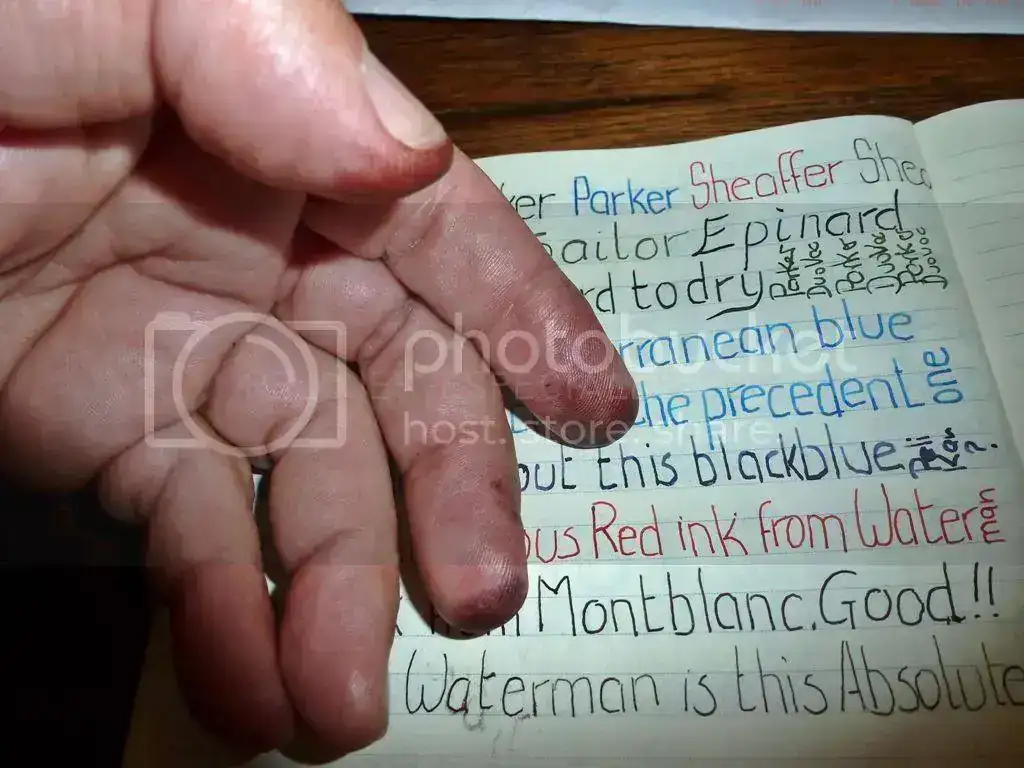 Parker Sheaffer
Sailor Epinard
to dry Parker Duofold Parker Duofold Parker Duofold
blue
the precedent one
out this blackblue
Red ink from Waterman
Montblanc. Good!!
Waterman is this Absolute
photobucket
host. store. share.